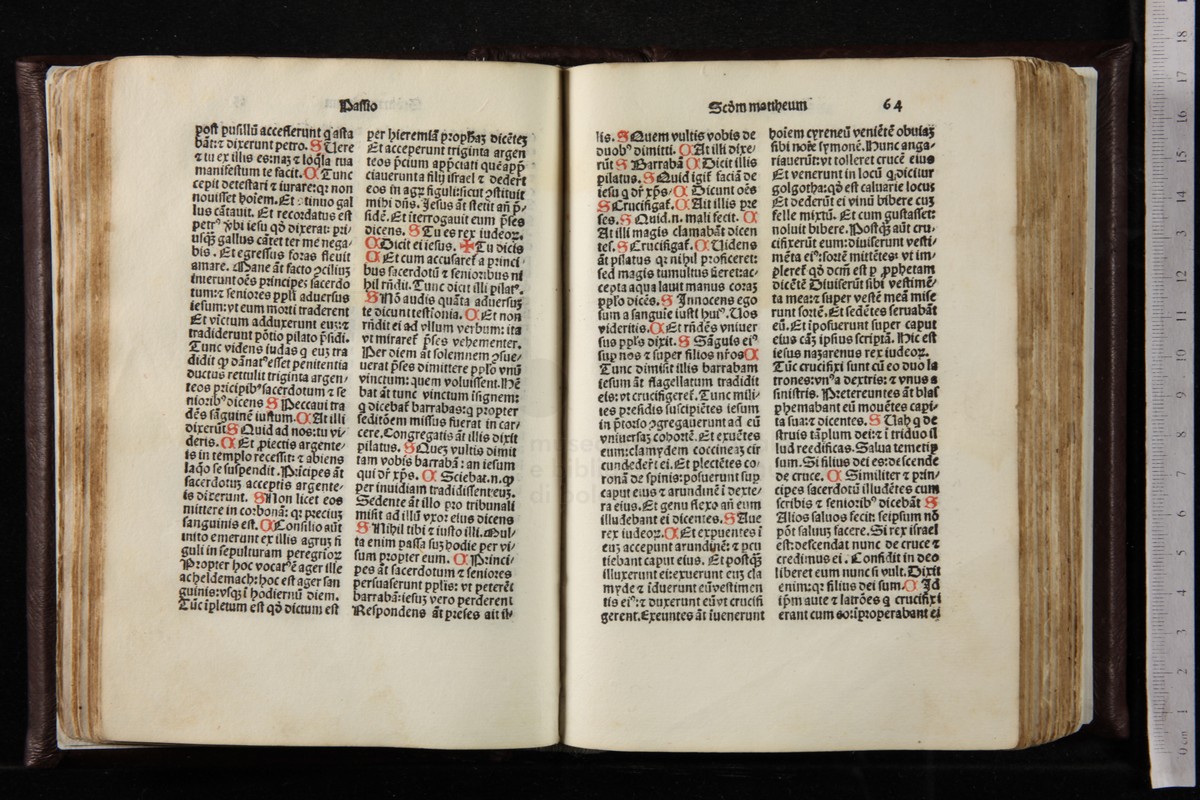 Passio
post pusillū accesserunt q asta
bāt: ⁊ dixerunt petro. S Uere
⁊ tu ex illis es: naʒ ⁊ loq̄la tua
manifestum te facit. C Tunc
cepit detestari ⁊ iurare: qꝛ non
nouisset hoīem. Et ꝯtinuo gal
lus cātauit. Et recordatus est
petrꝰ v̄bi iesu qō dixerat: pri/
usqʒ gallus cātet ter me nega/
bis. Et egressus foras fleuit
amare. Mane āt facto ꝯcilium
inierunt oēs principes sacerdo
tum: ⁊ seniores ppl̄i aduersus
iesum: vt eum morti traderent
Et vīctum adduxerunt eu:⁊
tradiderunt pōtio pilato p̄sidi.
Tunc videns iudas q euʒ tra
didit ꝙ dānatꝰ esset penitentia
ductus rettulit triginta argen/
teos prīcipibꝰ sacerdotum ⁊ se
nioribꝰ dicens S Peccaui tra
dēs sāguinē iustum. C At illi
dixerūt S Quid ad nos: tu vi/
deris. C Et ꝓiectis argente/
is in templo recessit: ⁊ abiens
laq̄o se suspendit. Prīcipes āt
sacerdotuʒ acceptis argente/
is dixerunt. S Non licet eos
mittere in corbonā: qꝛ preciuʒ
sanguinis est. C Consilio aūt
inito emerunt ex illis agruʒ fi
guli in sepulturam peregrinoꝝ
Propter hoc vocatꝰ ē ager ille
acheldemach: hoc est ager san
guinis: vsqʒ ī hodiernū diem.
Tūc īpletum est qō dictum est
per hieremiā ꝓphaʒ dicēteʒ
Et acceperunt triginta argen
teos p̄cium app̄ciati quē app̄
ciauerunt a filijs israel ⁊ dederūt
eos in agꝝ figuli: sicut ꝯstituit
mihi dn̄s. Jesus āt stetit an̄ p̄/
sidē. Et īterrogauit eum p̄ses
dicens. S Tu es rex iudeoꝝ.
C Dicit ei iesus. ✠ Tu dicis
C Et cum accusaret̄ a princi/
bus sacerdotū ⁊ senioribus ni
hil rn̄dit. Tunc dicit illi pilatꝰ.
S Nō audis quāta aduersuʒ
te dicunt testīonia. C Et non
rn̄dit ei ad vllum verbum: ita
vt miraret̄ p̄ses vehementer.
Per diem āt solemnem ꝯsue/
uerat p̄ses dimittere pplo vnū
vinctum: quem voluissent. Hē
bat āt tunc vinctum īsignem:
q dicebat̄ barrabas: q propter
seditōem missus fuerat in car/
cere. Congregatis āt illis dixit
pilatus. S Queʒ vultis dimit
tam vobis barrabā: an iesum
qui dr̄ xp̄s. C Sciebat .n. ꝙ
per inuidiam tradidissent euʒ.
Sedente āt illo pro tribunali
misit ad illū vxor eius dicens
S Nihil tibi ⁊ iusto illi. Mul/
ta enim passa suʒ hodie per vi/
sum propter eum. C Princi/
pes āt sacerdotum ⁊ seniores
persuaserunt pplis: vt peterēt
barrabā: iesuʒ vero perderent
Respondens āt preses ait il/
Scd̄m mattheum 64
lis. S Quem vultis vobis de
duobꝰ dimitti. C At illi dixe/
rūt S Barrabā C Dicit illis
pilatus. S Quid igit̄ faciā de
iesu q dr̄ xp̄s/ C Dicunt oēs
S Crucifigat̄. C Ait illis pre
ses. S Quid .n. mali fecit. C
At illi magis clamabāt dicen
tes. S Crucifigat̄. C Uidens
āt pilatus qꝛ nihil proficeret:
sed magis tumultus fieret: ac/
cepta aqua lauit manus coraʒ
pplo dicēs. S Innocens ego
sum a sanguīe iusti huiꝰ. Uos
videritis. C Et rn̄dēs vniuer
sus ppl̄s dixit. S Sāguis eiꝰ
sup nos ⁊ super filios nr̄os C
Tunc dimisit illis barrabam
iesum āt flagellatum tradidit
eis: vt crucifigeret̄. Tunc mili/
tes presidis suscipiētes iesum
in p̄torio ꝯgregauerunt ad eū
vniuersaʒ cohortē. Et exuētes
eum: clamydem coccineaʒ cir
cundederūt ei. Et plectētes co/
ronā de spinis: posuerunt sup
caput eius ⁊ arundinē ī dexte/
ra eius. Et genu flexo an̄ eum
illudebant ei dicentes. S Aue
rex iudeoꝝ. C Et expuentes ī
euʒ acceperunt arundinē: ⁊ pcu
tiebant caput eius. Et postqʒ
illuxerunt ei: exuerunt euʒ cla
myde ⁊ iduerunt eū vestimen
tis eiꝰ: ⁊ duxerunt eū vt crucifi
gerent. Exeuntes āt īuenerunt
hoīem cyreneū veniētē obuiaʒ
sibi noīe symonē. Hunc anga/
riauerūt: vt tolleret crucē eius
Et venerunt in locū q dicitur
golgotha: qō est caluarie locus
Et dederūt ei vinū bibere cuʒ
felle mixtū. Et cum gustasset:
noluit bibere. Postqʒ aūt cru/
cifixerūt eum: diuiserunt vesti/
mēta eiꝰ: sortē mittētes: vt im/
pleret̄ qō dcm̄ est p ꝓphetam
dicētē Diuiserūt sibi vestimē/
ta mea: ⁊ super vestē meā mise
runt sortē. Et sedētes seruabāt
eū. Et īposuerunt super caput
eius cāʒ ipsius scriptā. Hic est
iesus nazarenus rex iudeoꝝ.
Tūc crucifixi sunt cū eo duo la
trones: vnꝰ a dextris: ⁊ vnus a
sinistris. Pretereuntes āt blas
phemabant eū mouētes capi/
ta sua: ⁊ dicentes. S Uah q de
struis tāplum dei: ⁊ ī triduo il
lud reedificas. Salua temetip
sum. Si filius dei es: descende
de cruce. C Similiter ⁊ prin/
cipes sacerdotū illudētes cum
scribis ⁊ senioribꝰ dicebāt S
Alios saluos fecit: seipsum nō
pōt saluuʒ facere. Si rex israel
est: descendat nunc de cruce ⁊
credimus ei. Confidit in deo
liberet eum nunc si vult. Dixit
enim: qꝛ filius dei sum. C Id
ip̄m aute ⁊ latrōes q crucifixi
erant cum eo: īproperabant ei